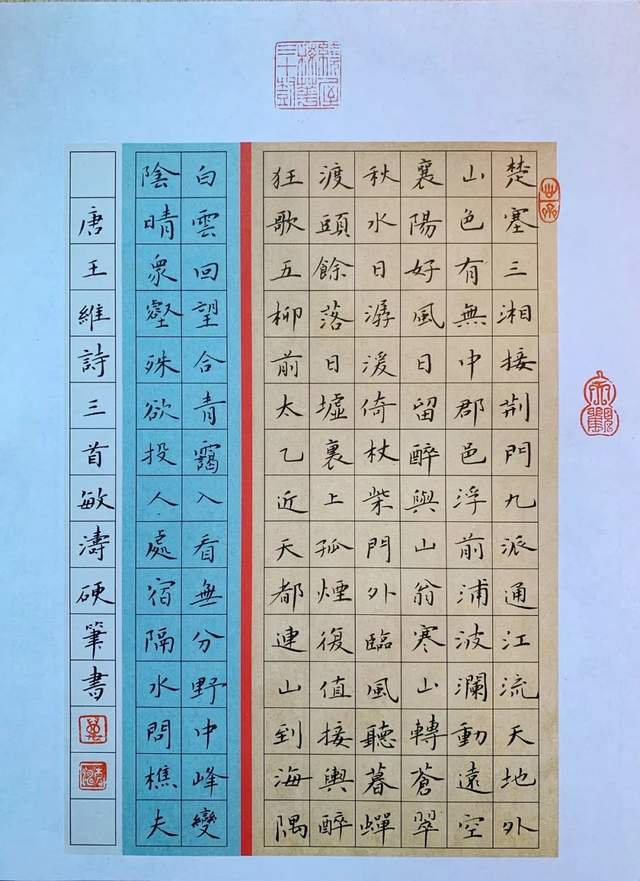 楚塞三湘接荆門九派通江流天地外
山色有無中郡邑浮前浦波瀾動遠空
襄陽好風日留醉與山翁寒山轉蒼翠
秋水日潺湲倚杖柴門外臨風聽暮蟬
渡頭餘落日墟裏上孤煙復值接輿醉
狂歌五柳前太乙近天都連山到海隅
白雲回望合青靄入看無分野中峰變
陰晴衆壑殊欲投人處宿隔水問樵夫
唐王維詩三首敏濤硬筆書